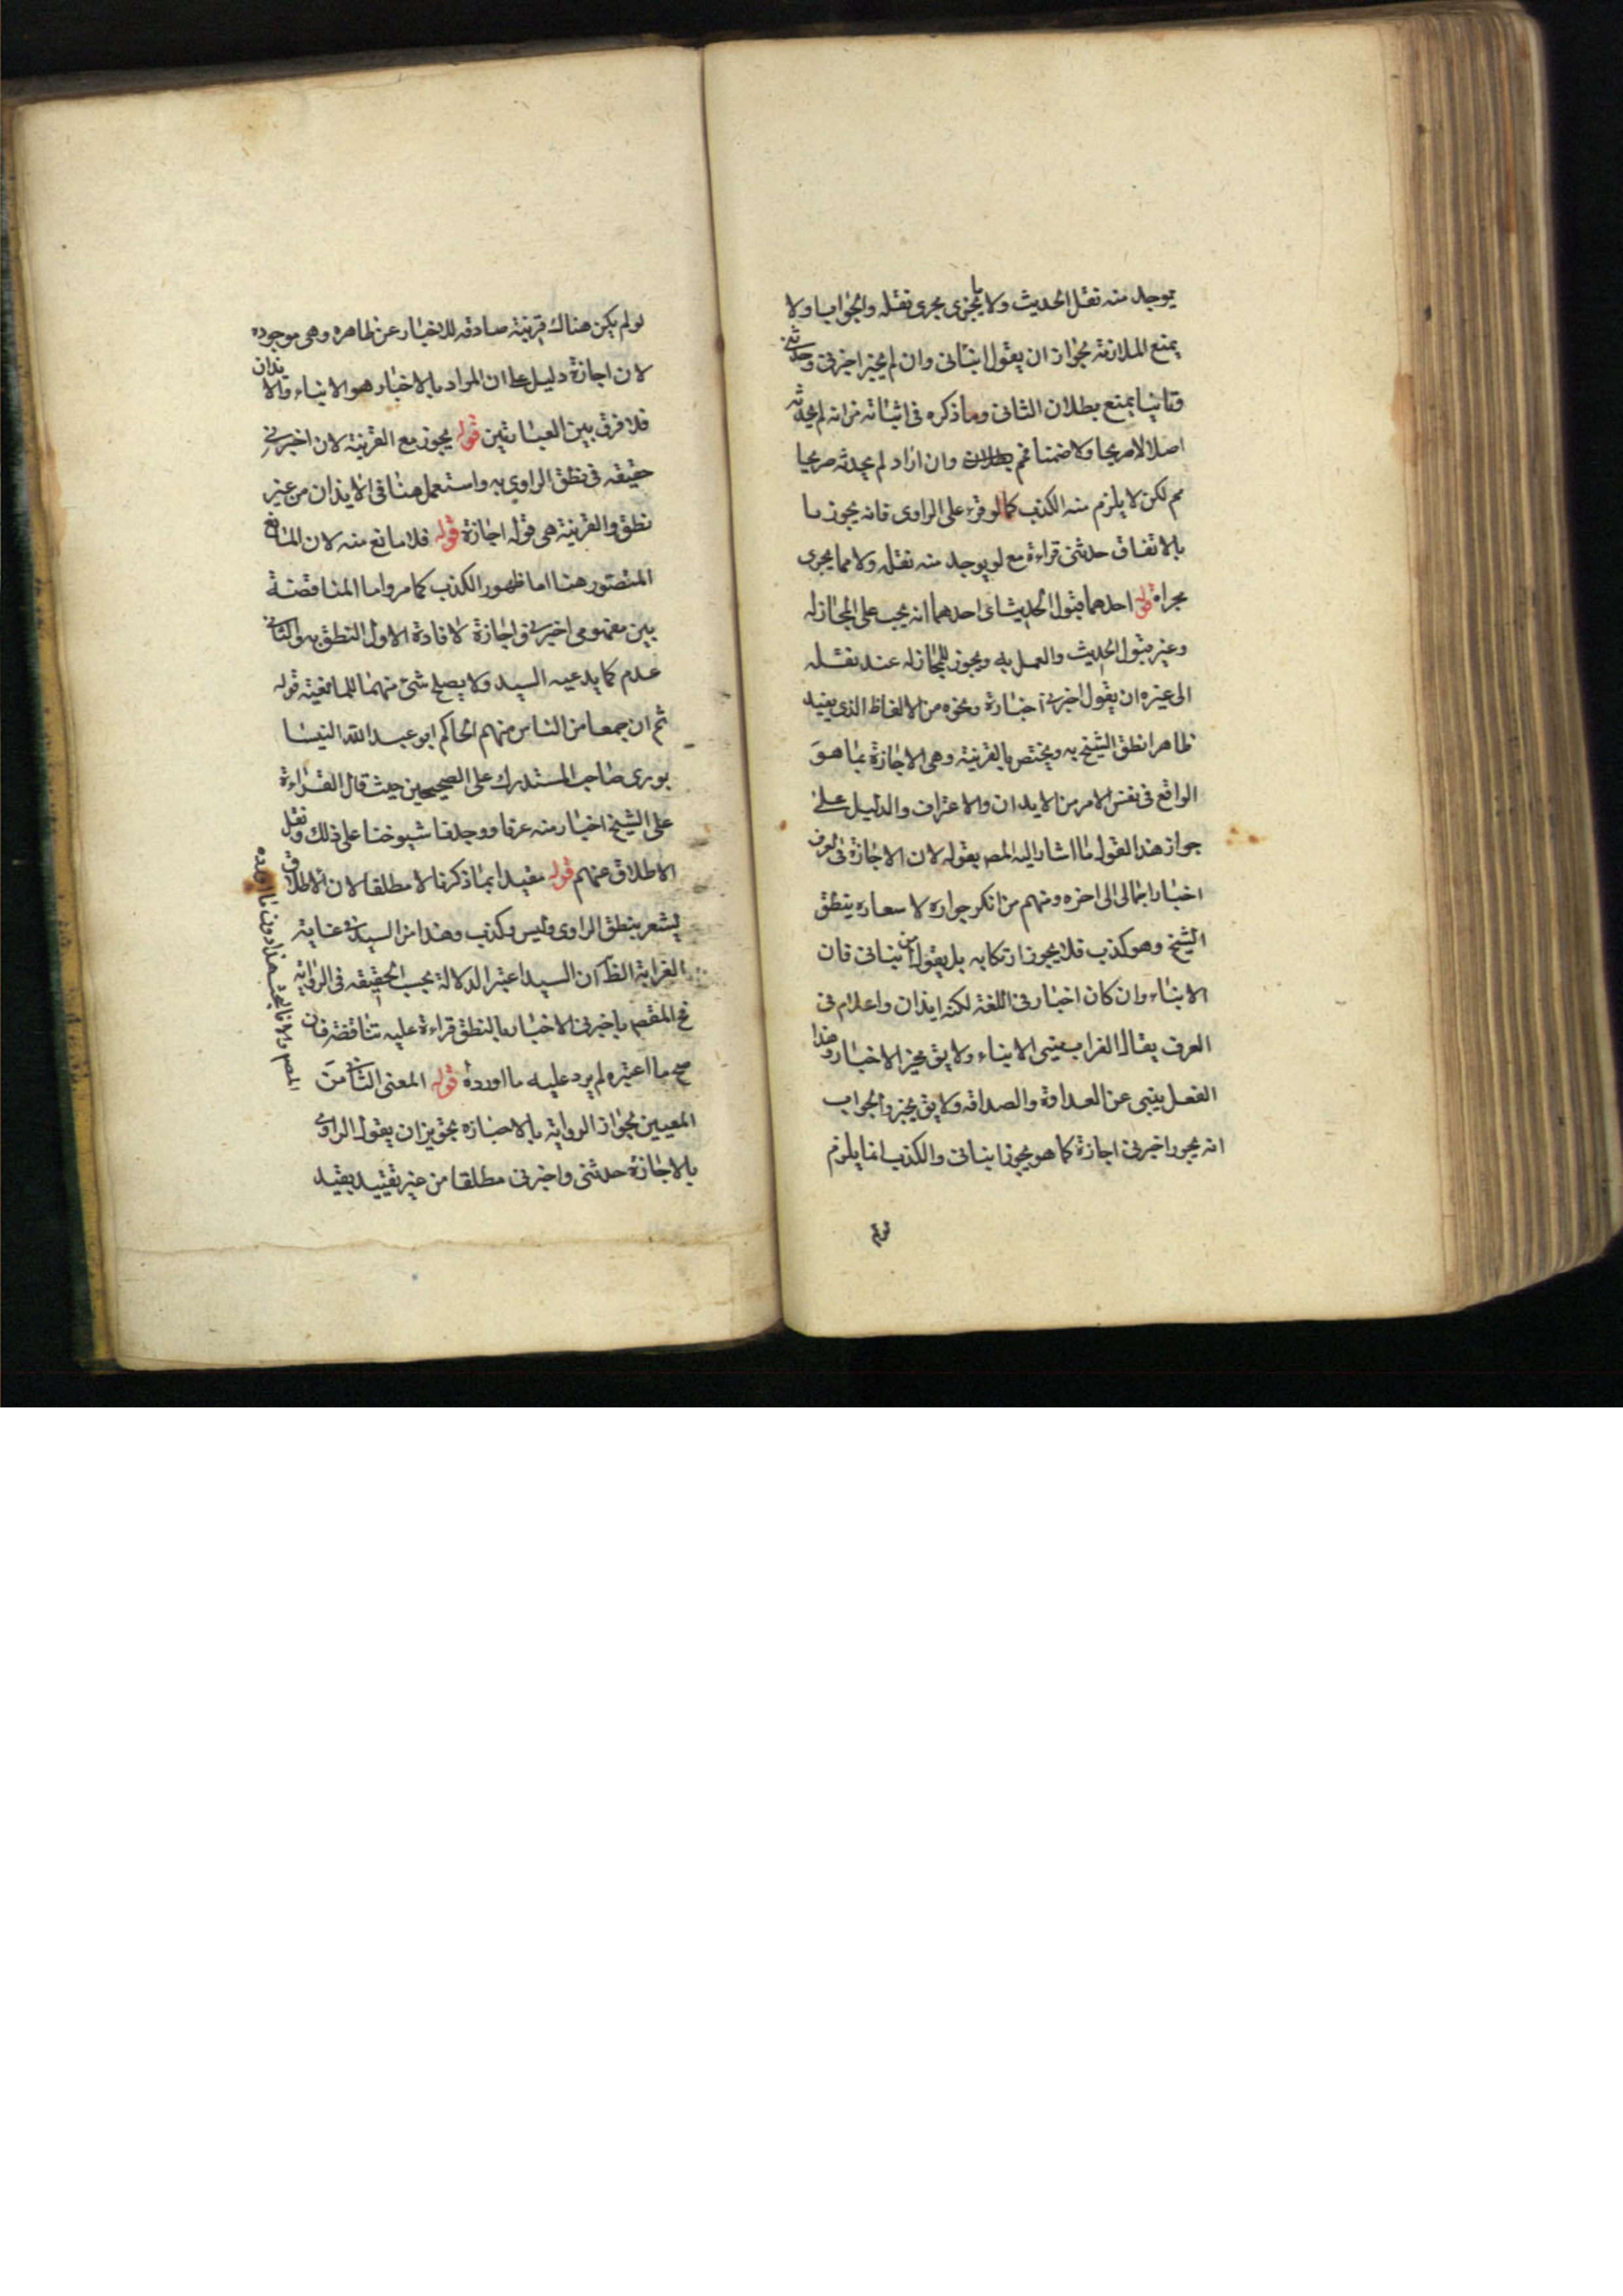 يوجد منه نقل الحديث ولا ما يجرى مجرى نقله والجواب اولا
يمنع الملازمة بجواز ان يقول انبأنى وان لم يجز اخبرنى وحدثنى
وثانيا يمنع بطلان الثانى وما ذكره فى اثباته من انه لم يحدثه
اصلا لا صريحا ولا ضمنا فمم وان اراد لم يحدثه صريحا
مم لكن لا يلزم منه الكذب كما لو قرء على الراوى فانه يجوز
بالاتفاق حدثنى قراءة مع لو يوجد منه نقله ولا مما يجرى
مجراه قوله احدهما قبول الحديث اى احدهما انه يجب على المجاز له
وغيره قبول الحديث والعمل به ويجوز للمجاز له عند نقله
الى غيره ان يقول اخبرنى اجازة ونحوه من الالفاظ الذى يفيد
ظاهرا نطق الشيخ به ويختص بالقرينة وهى الاجازة بما هو
الواقع فى نفس الامر من الايذان والاعتراف والدليل على
جواز هذا القول ما اشار اليه المص بقوله لان الاجازة فى العرف
اخبار اجمالى الى اخره ومنهم من انكر جوازه لاشعاره بنطق
الشيخ وهو كذب فلا يجوز ارتكابه بل يقول انبأنى فان
الانباء وان كان اخبار فى اللغة لكنه ايذان واعلام فى
العرف يقال الغراب ينبى الانباء ولا يق يخبر الاخبار وهذا
الفعل ينبى عن العداوة والصداقه ولا يق يخبر والجواب
انه يجوز اخبرنى اجازة كما هو يجوز انبانى والكذب انما يلزم
لو لم
لو لم يكن هناك قرينة صادقه للاخبار عن ظاهره وهى موجوده
لان اجازة دليل على ان المراد بالاخبار هو الانباء والايذان
فلا فرق بين العبارتين قوله يجوز مع القرينة لان اخبرنى
حقيقه فى نطق الراوى به واستعمل هنا فى الايذان من غير
نطق والقرينة هى قوله اجازة قوله فلا مانع منه لان المانع
المتصور هنا اما ظهور الكذب كما مر واما المناقضة
بين مفهومى اخبرنى واجازة لافادة الاول النطق به والثانى
عدم كما يدعيه السيد ولا يصلح شئ منهما للمانعية قوله
ثم ان جمعا من الناس منهم الحاكم ابو عبد الله النيسا
بورى صاحب المستدرك على الصحيحين حيث قال القراءة
على الشيخ اخبار منه عرفا ووجدنا شيوخنا على ذلك ونقل
الاطلاق عنهم قوله مقيدا بما ذكرنا لا مطلقا لان الاطلاق
يشعر بنطق الراوى وليس وكذب وهذا من السيد فى غاية
الغرابة الظ ان السيد اعتبر الدلالة بحسب الحقيقه فى الرواية
فح المقصم باخبرنى الاخبار بالنطق قراءة عليه تناقضه فان
صح ما اعتبره لم يرد عليه ما اورده قوله المعنى الثانى من
المعيين بجواز الرواية بالاجازه تجويز ان يقول الراوى
بالاجازة حدثنى واخبرنى مطلقا من غير تقييد بقيد